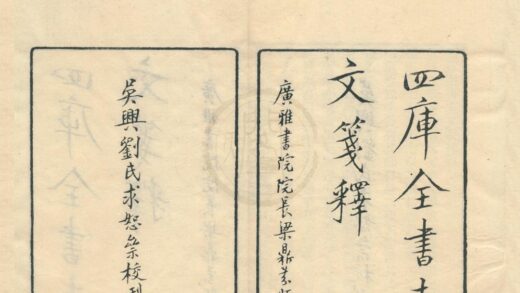 四庫全書
文箋釋
廣雅書院院長梁鼎芬
吳興劉氏求恕齋校刊